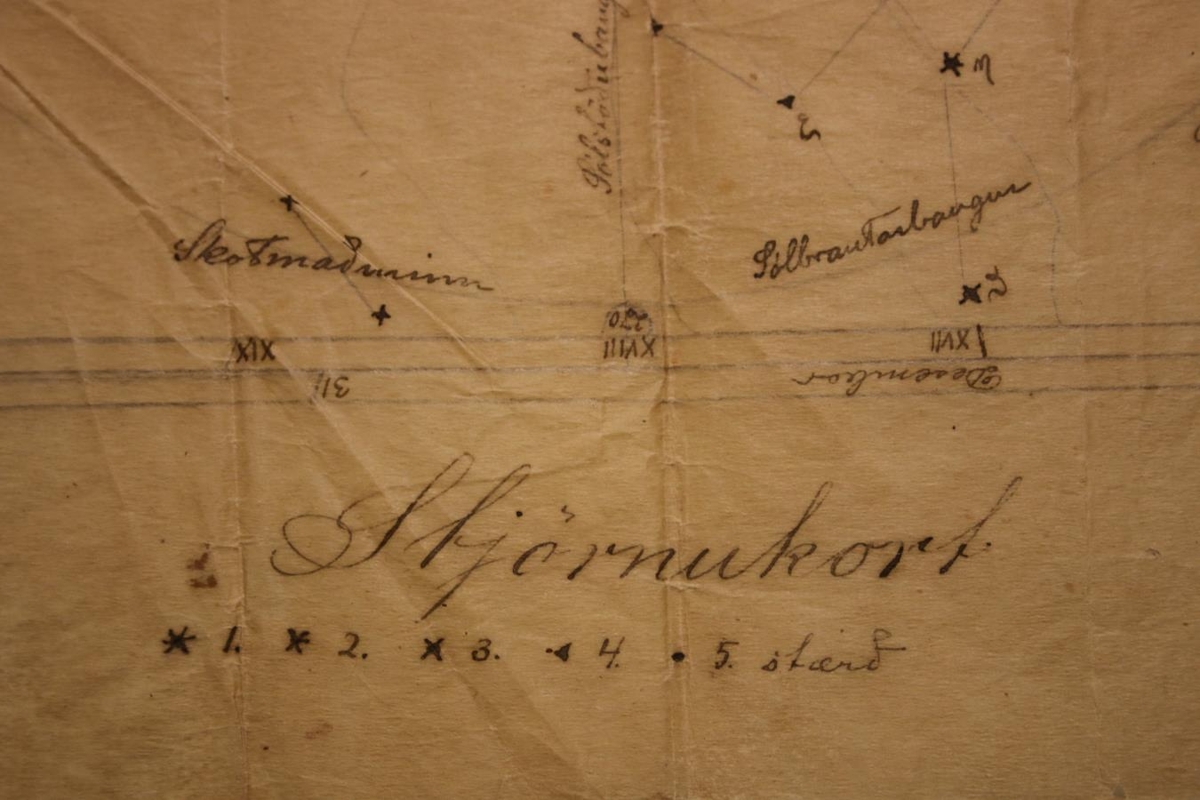 Sólstöðubaug
η
ε
Sólbrautarbaugur
Skotmaðurinn
ζ
270
XIX XVIII XVII
31 Desember
Stjörnukort
1. 2. 3. 4. 5. stærð